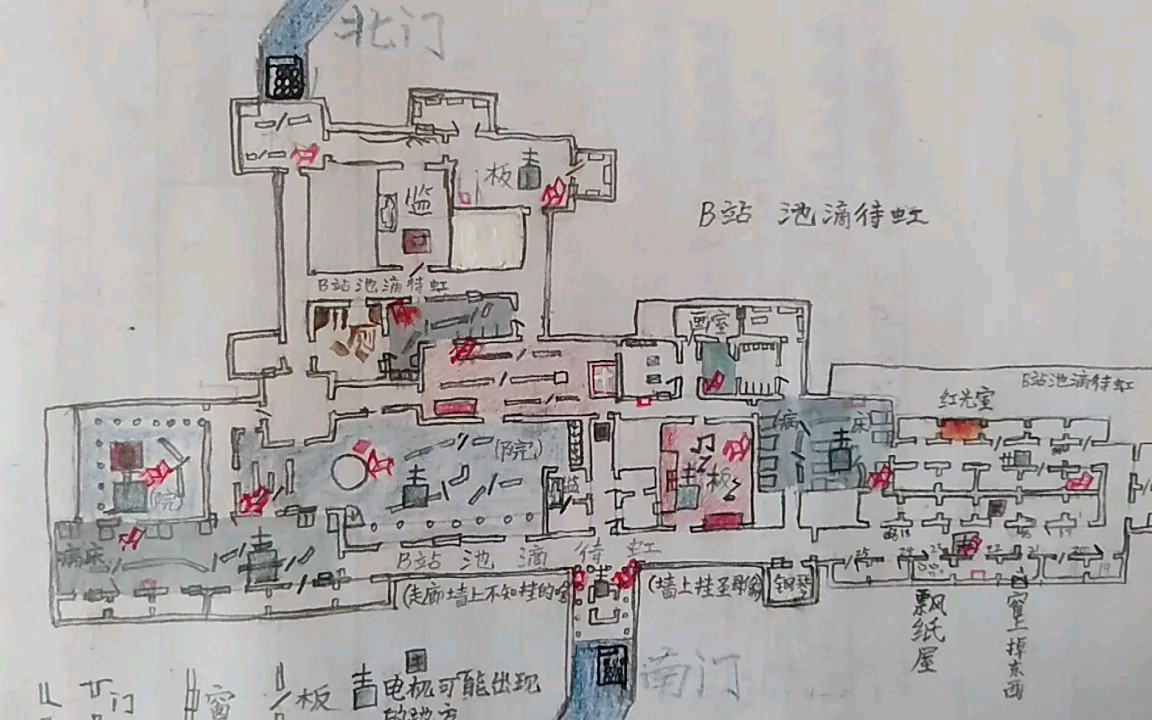 北门
监
板
B站 池滴待虹
B站池滴待虹
画室
B站池滴待虹
红光室
病
床
(院)
板
(院)
监
病床
B站 池 滴 待 虹
(走廊墙上不知挂的啥
(墙上挂圣
钢琴
飘纸屋
窗上掉东西
南门
门
窗
板
电机可能出现
的地方